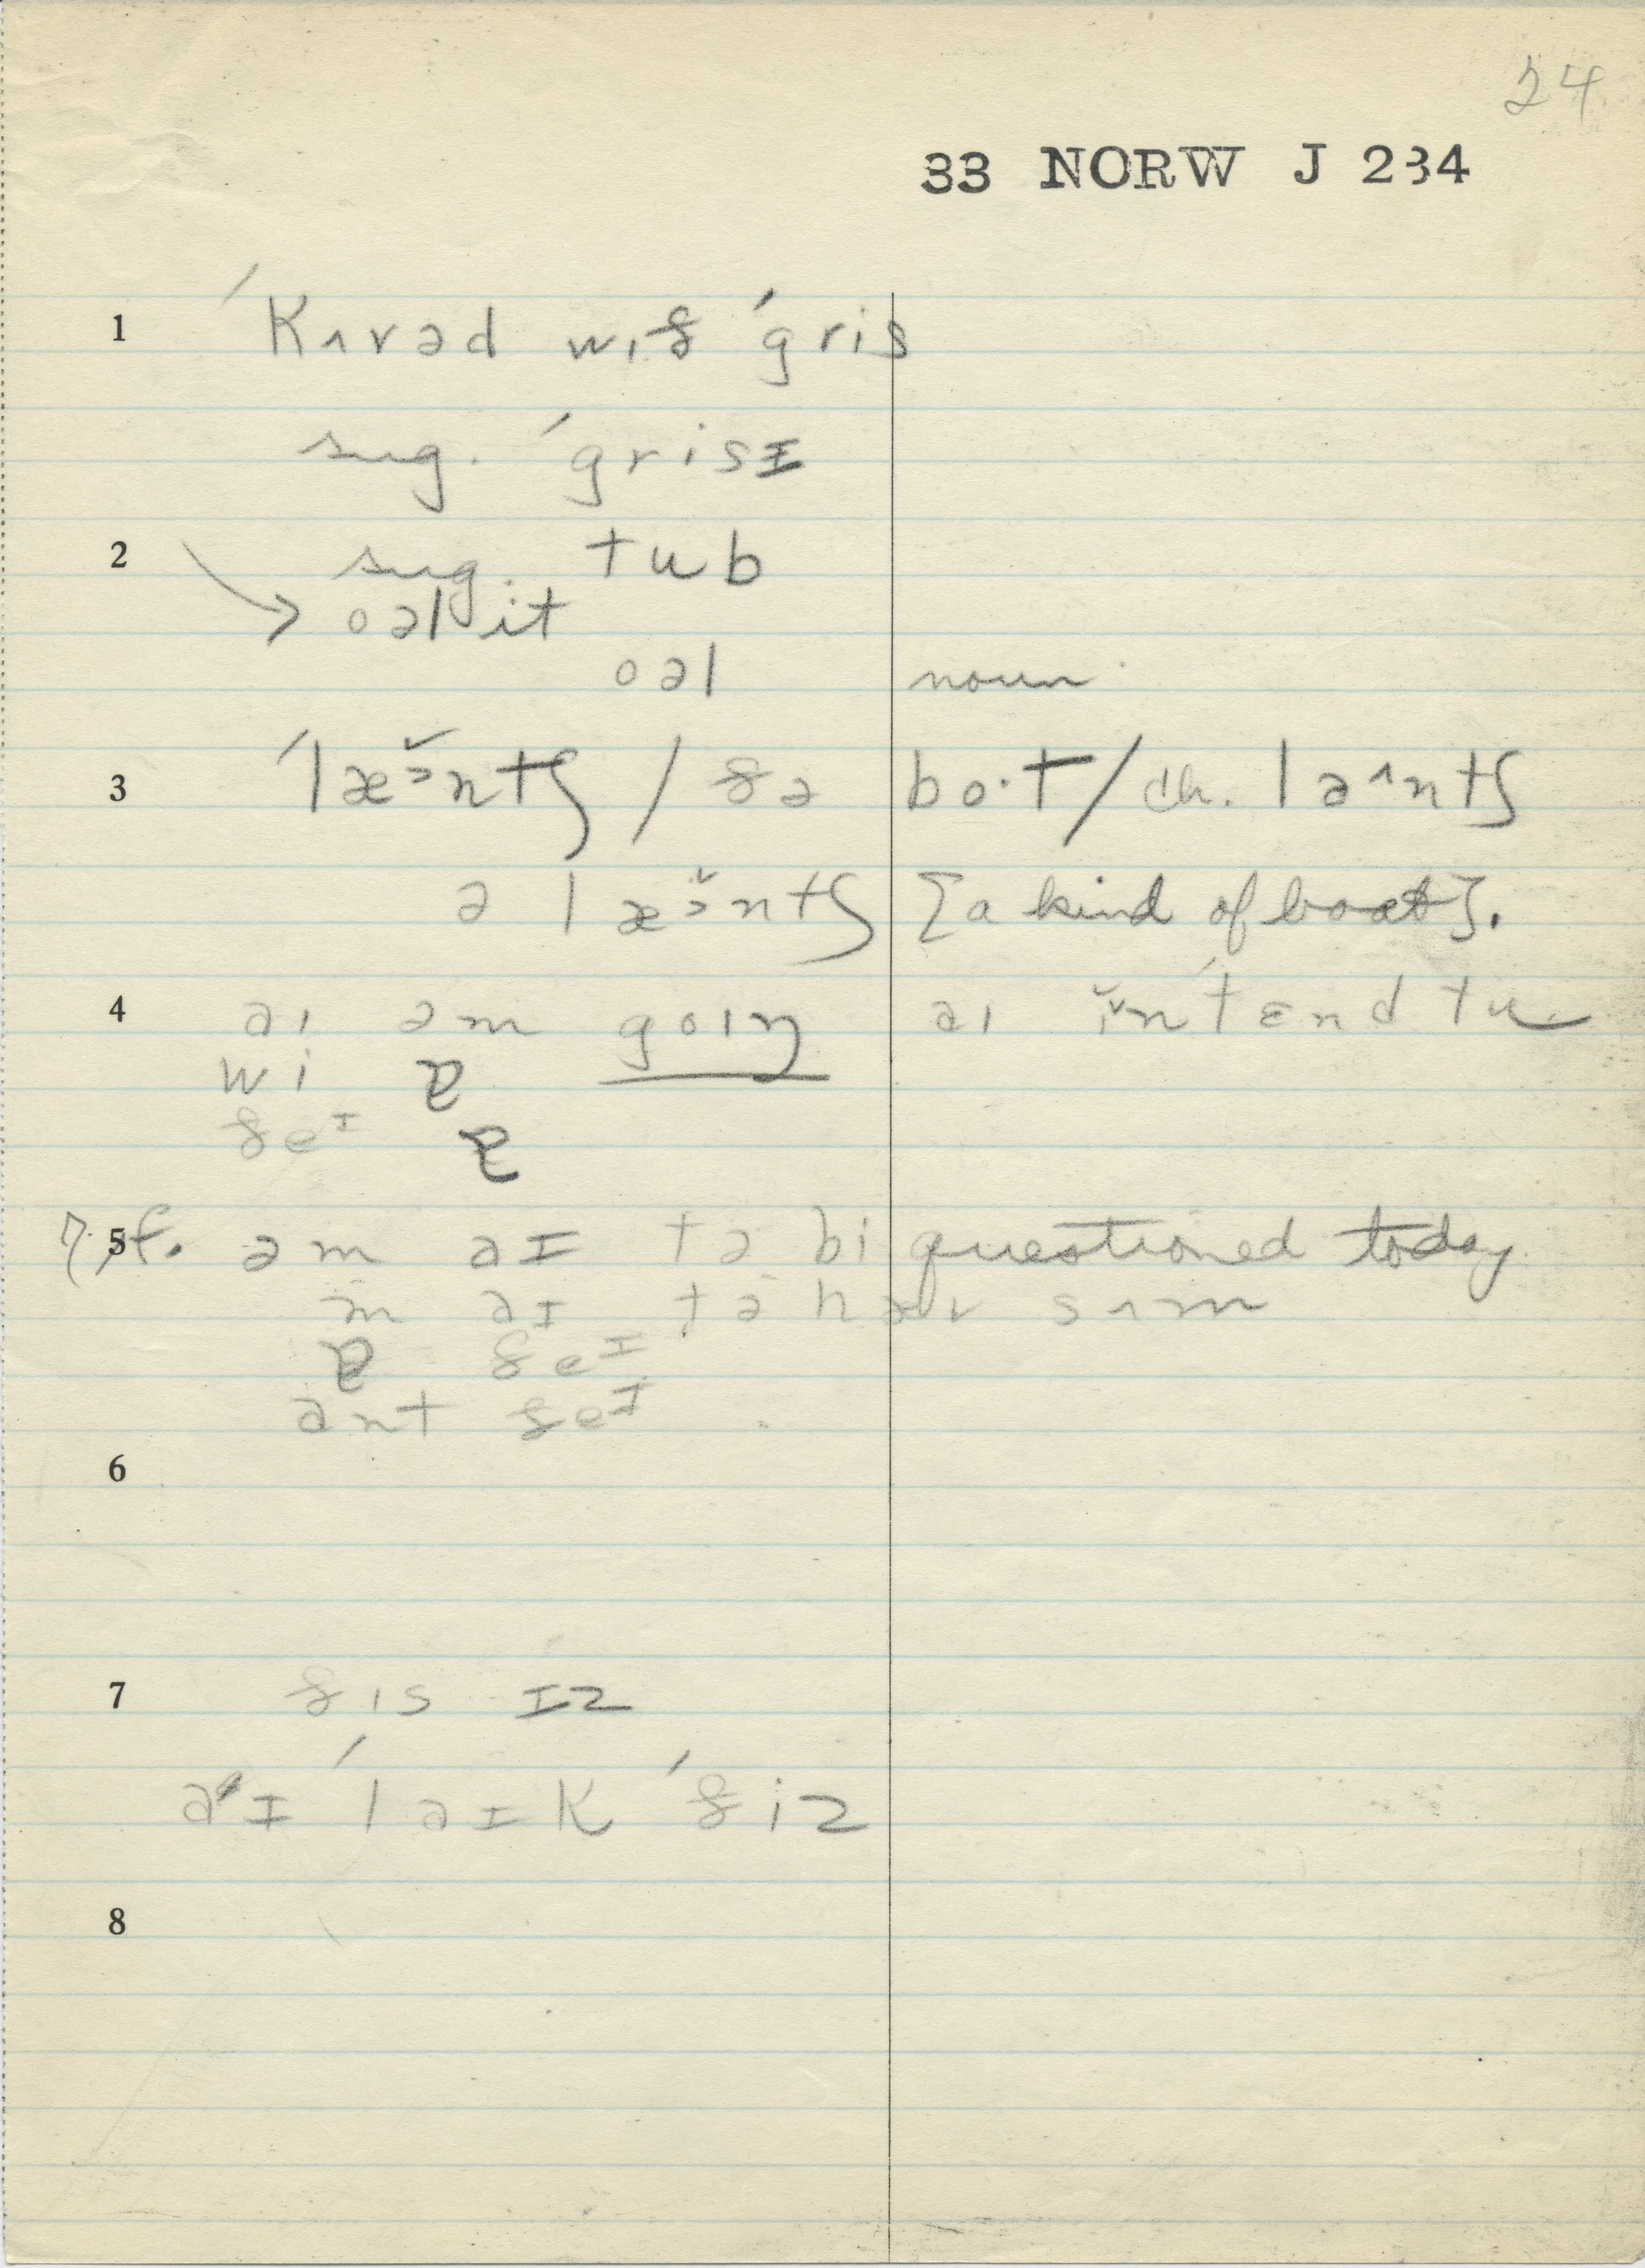 24
33 NORW J 234
1 ˈkʌvəd wɪð ˈgris
sug. ˈgrisɪ
2 sug. tub
→ oəl it
oəl noun
3 ˈlæɔ̆ntʃ / ðə bo·t / ch. la^ntʃ
ə læɔ̆ntʃ [a kind of boat].
4 aɪ əm goɪŋ aɪ ɪ̆nˈtɛnd tu
wi
ðeɪ
5 am aɪ tə bi questioned today
m aɪ tə hæv sʌm
ðeɪ
ant ðeɪ
6
7 ðɪs ɪz
aɪ ˈlaɪk ˈðiz
8